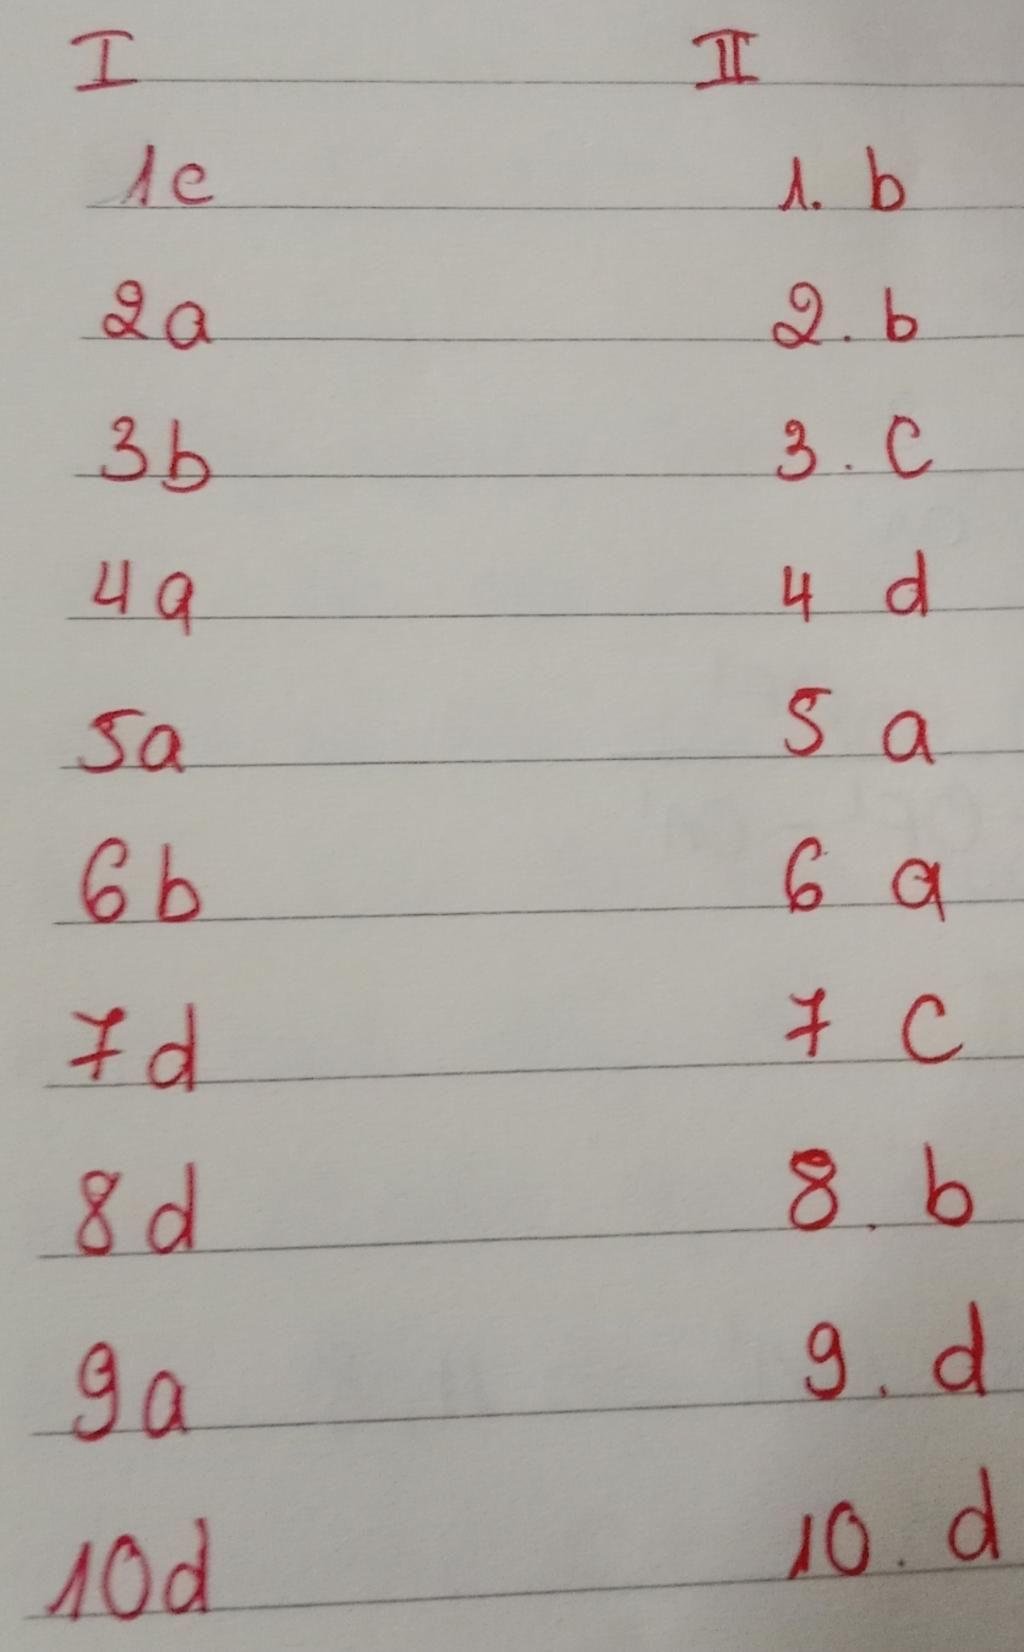 I II
1c 1. b
2a 2. b
3b 3. c
4a 4 d
5a 5 a
6b 6 a
7d 7 c
8d 8. b
9a 9. d
10d 10. d